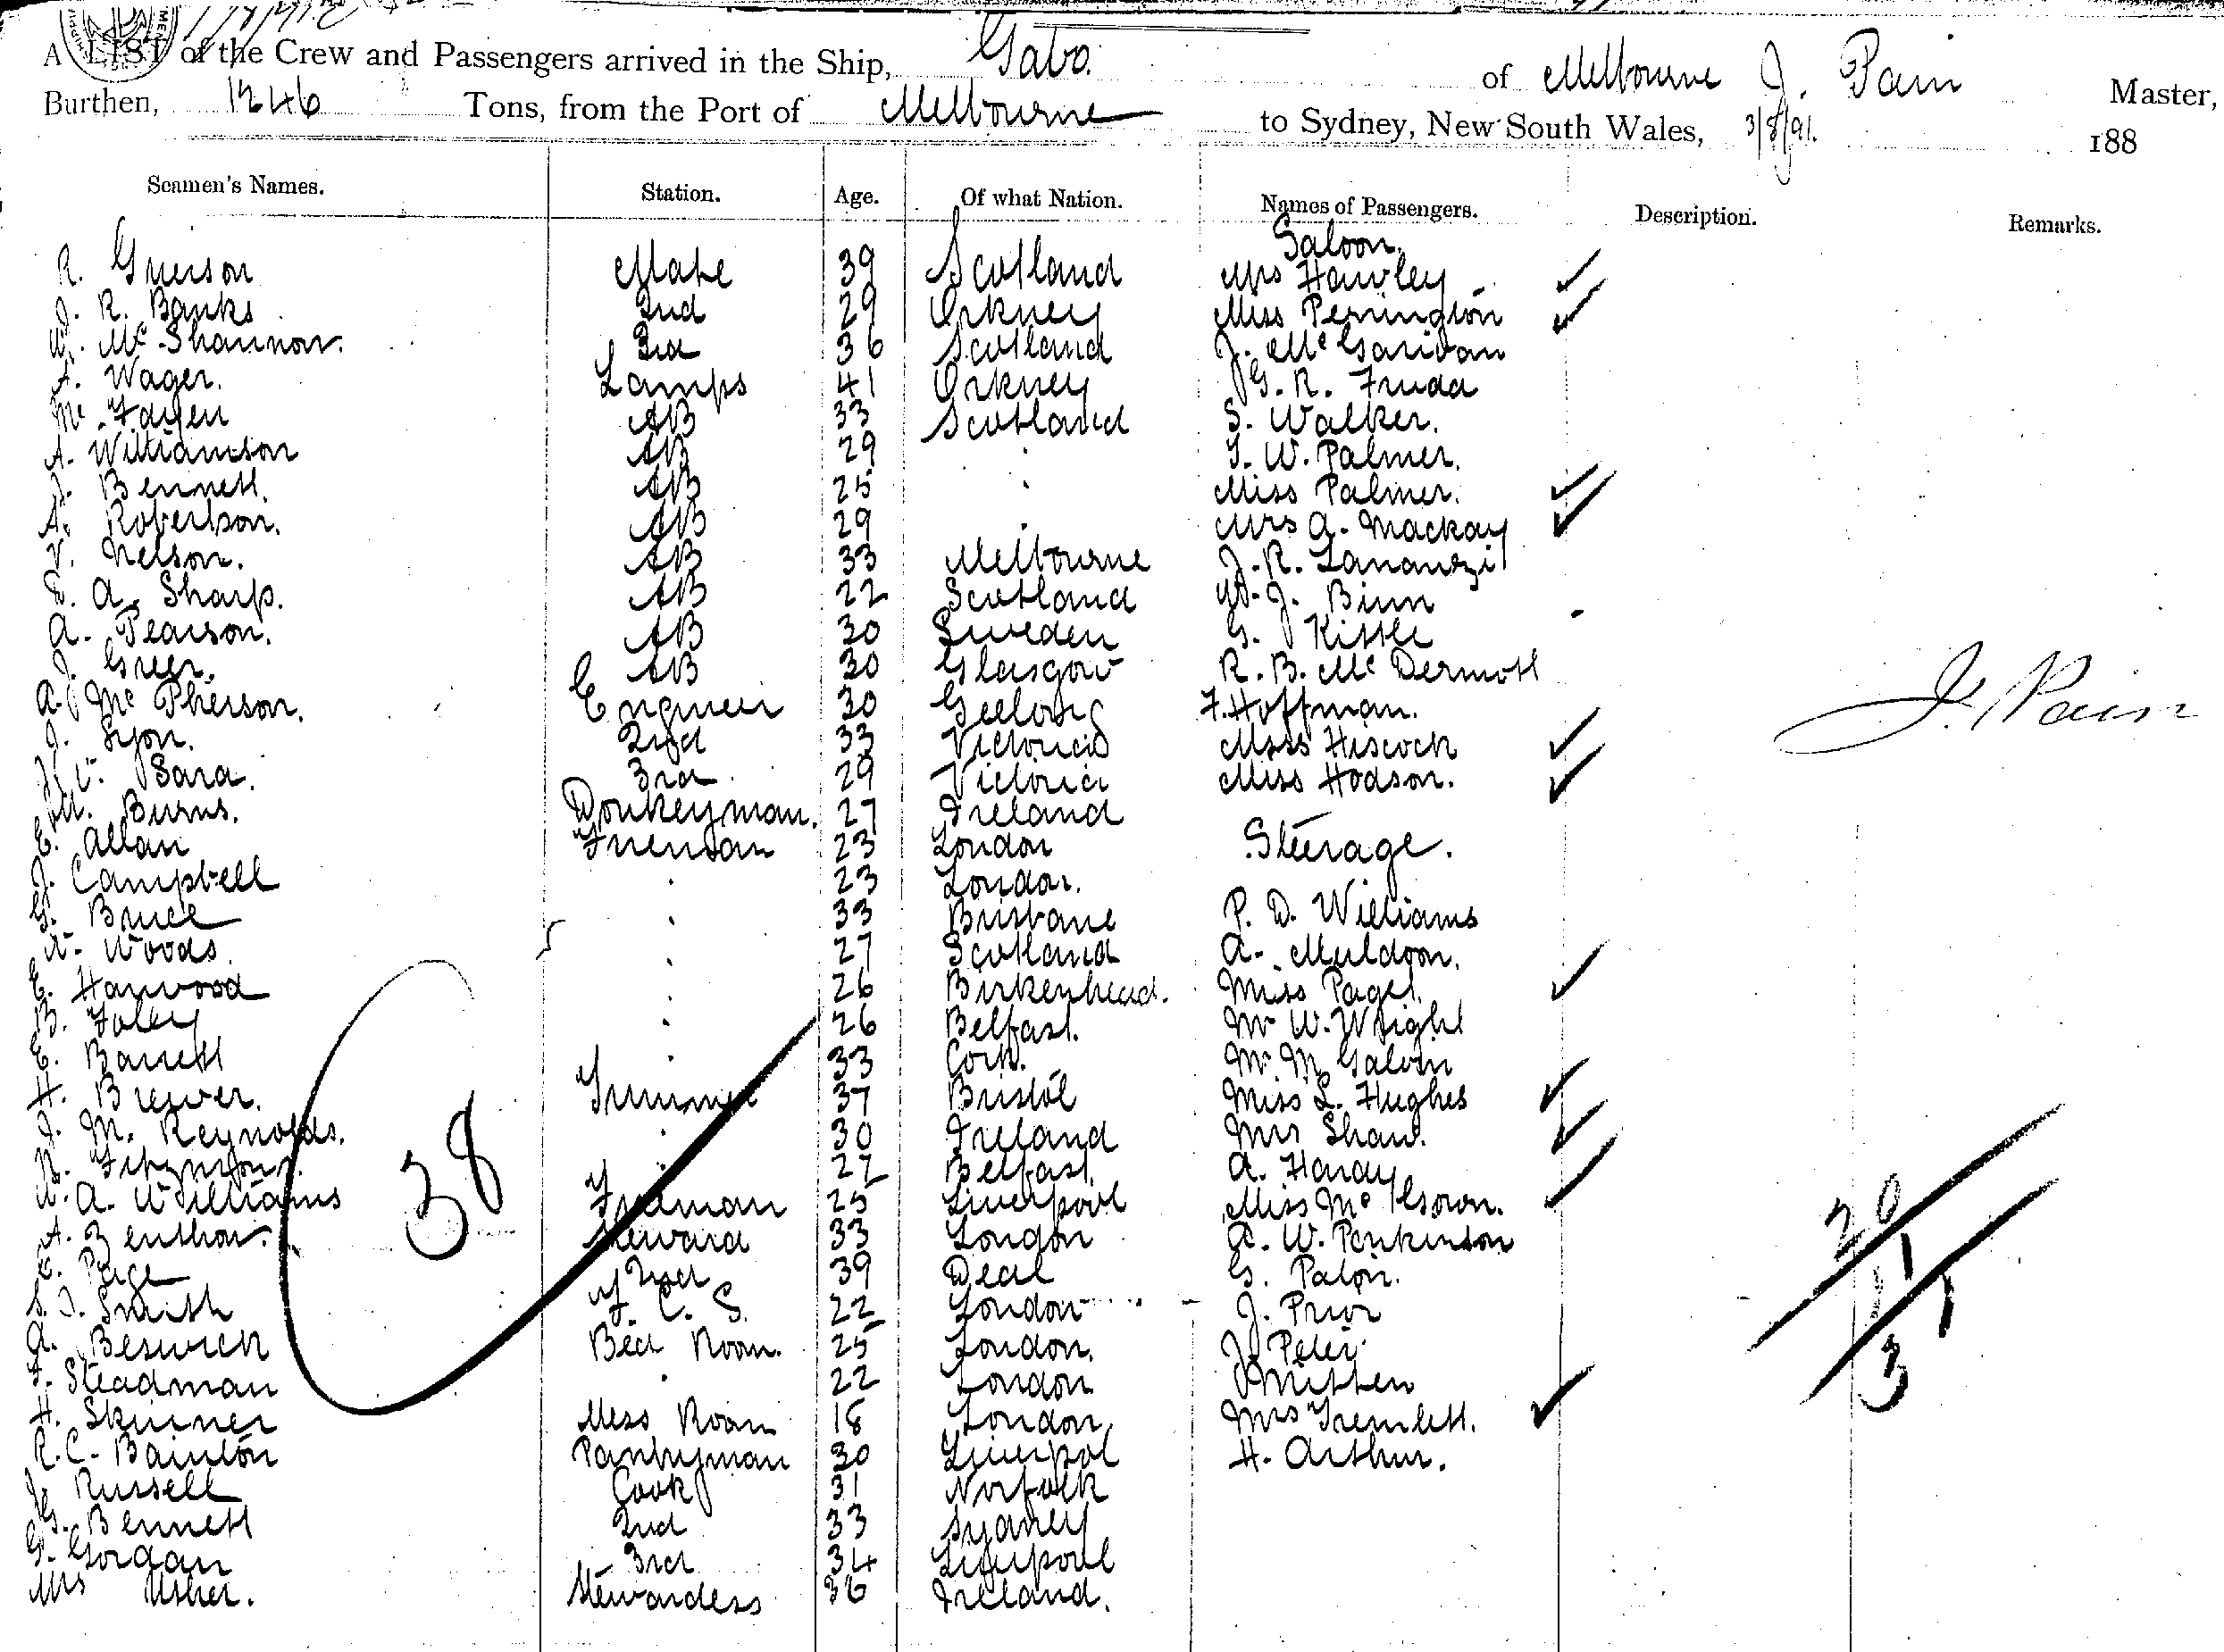 A LIST of the Crew and Passengers arrived in the Ship, Gabo. of Melbourne J. Pain Master,
Burthen, 1246 Tons, from the Port of Melbourne to Sydney, New South Wales, 3/8/91. 188
Seamen's Names. Station. Age. Of what Nation. Names of Passengers. Description. Remarks.
Saloon.
R. Grierson Mate 39 Scotland Mrs Hawley
J. R. Banks 2nd 29 Orkney Miss Pennington
Mc Shannon. 3rd 36 Scotland J. Mc
Wager. Lamps 41 Orkney G. R.
AB 33 Scotland S. Walker.
A. Williamson AB 29 W. Palmer.
J. Bennett. AB 25 Miss Palmer.
A. Robertson. AB 29 Mrs A. Mackay
Nelson. AB 33 Melbourne J. R.
A. Sharp. AB 22 Scotland W. J. Binn
A. Pearson. AB 30 Sweden G.
J. Greer. AB 30 Glasgow R. B. Mc Dermott
A. Mc Pherson. Engineer 30 Geelong F. Hoffman.
J. Lyon. 2nd 33 Victoria Miss Hiscock
Sara. 3rd 29 Victoria Miss Hodson.
Burns. Donkeyman. 27 Ireland
E. Allan Fireman 23 London Steerage.
J. Campbell 23 London.
G. Bruce 33 Brisbane P. D. Williams
Woods. 27 Scotland A. Muldoon.
E. Harwood 26 Birkenhead. Miss Paget.
B. Foley 26 Belfast. Mr W. Wright
E. Barrett 33 Cork. Mr M Galvin
H. Brewer. Trimmer 37 Bristol Miss L. Hughes
J. M. Reynolds. 30 Ireland Mrs Shaw.
Fitzmons. 27 Belfast. A. Hardy
W. A. Williams Fireman 25 Liverpool Miss Mc Gown.
A. Benthow. Steward 33 London A. W. Parkinson
Page 2nd 39 Deal G. Paton.
Smith F. C. S. 22 London J. Prior
A. Beswick Bed Room. 25 London. J. Peter
F. Steadman 22 London Mitten
H. Skinner Mess Room 18 London. Mrs Tremlett.
R. C. Bainton Pantryman 30 Liverpol H. Arthur.
J. Russell Cook 31 Norfolk
G. Bennett 2nd 33 Sydney
G. Gordan 3rd 34 Liverpool
Mrs Usher. Stewardess 36 Ireland.
J. Pain
38
20